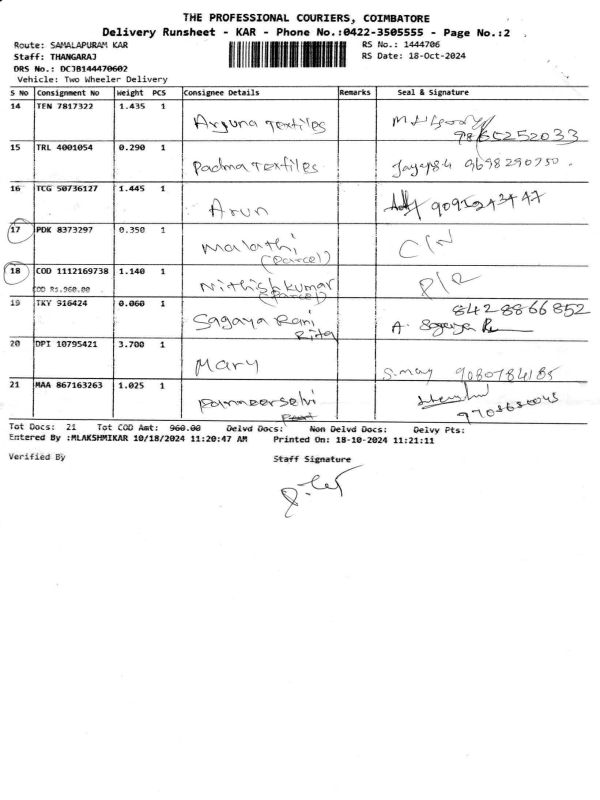 THE PROFESSIONAL COURIERS, COIMBATORE
Delivery Runsheet - KAR - Phone No.:0422-3505555 - Page No.:2
Route: SAMALAPURAM KAR RS No.: 1444706
Staff: THANGARAJ RS Date: 18-Oct-2024
DRS No.: DCJB144470602
Vehicle: Two Wheeler Delivery
S No Consignment No Weight PCS Consignee Details Remarks Seal & Signature
14 TEN 7817322 1.435 1
Arjuna Textiles 9865252033
15 TRL 4001054 0.290 1
Padma Textiles 9698290750.
16 TCG 50736127 1.445 1
Arun
17 PDK 8373297 0.350 1
Malathi C/N
(Parcel)
18 COD 1112169738 1.140 1
COD Rs.960.00 Nithishkumar P/R
(Parcel)
19 TKY 916424 0.060 1 8428866852
Sagaya Rani A. Sagaya
Rita
20 DPI 10795421 3.700 1
Mary 9080784185
21 MAA 867163263 1.025 1
Panneerselvi
Tot Docs: 21 Tot COD Amt: 960.00 Delvd Docs: Non Delvd Docs: Delvy Pts:
Entered By :MLAKSHMIKAR 10/18/2024 11:20:47 AM Printed On: 18-10-2024 11:21:11
Verified By Staff Signature